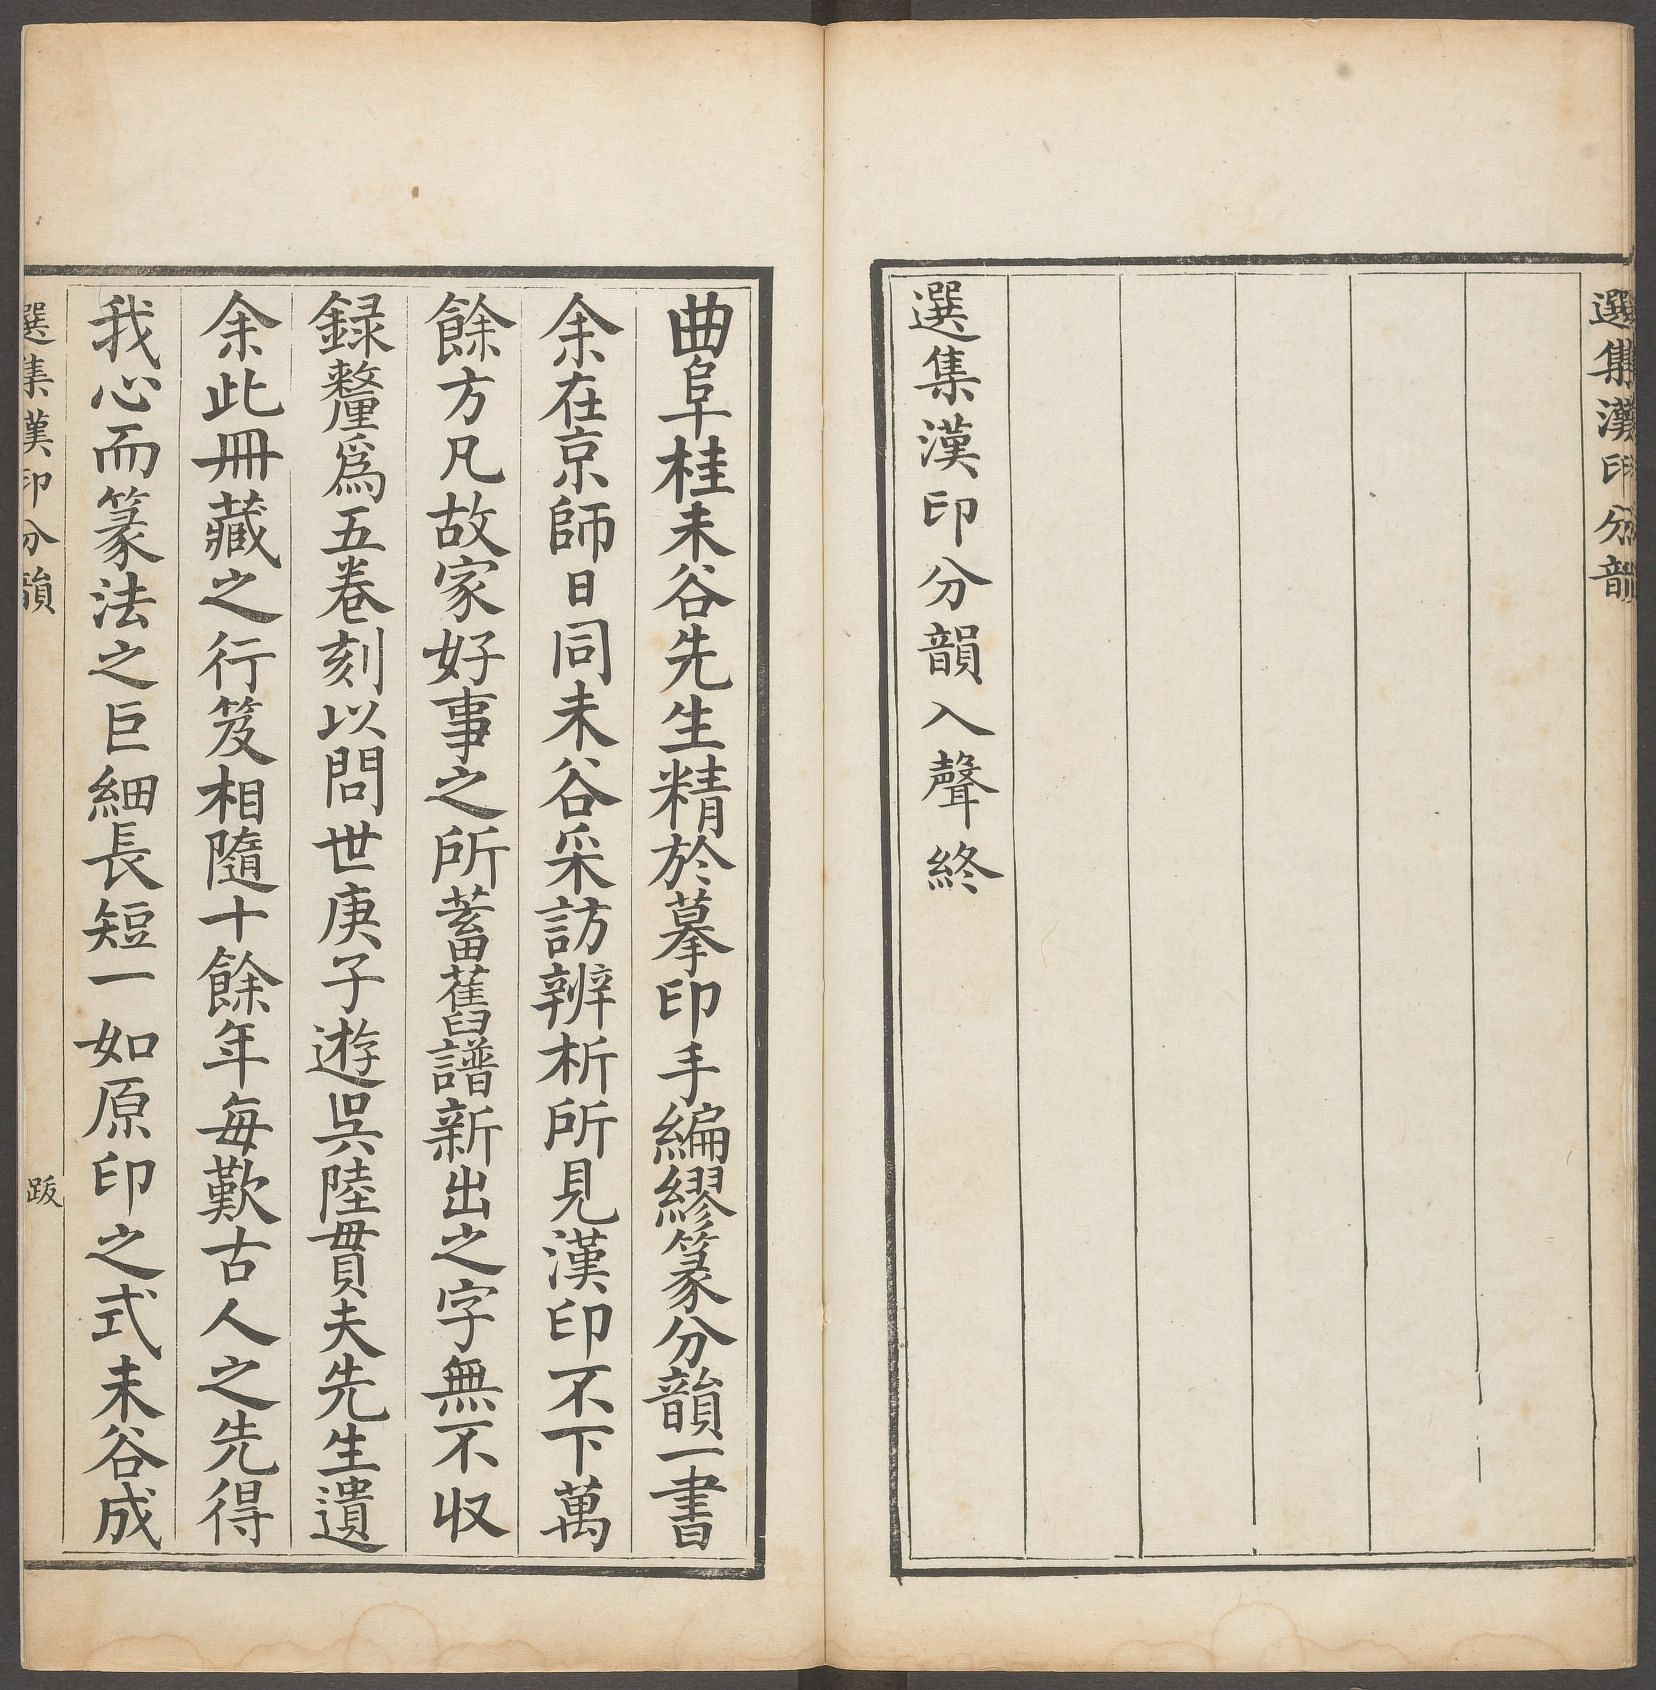 選集漢印分韻
選集漢印分韻入聲終
曲阜桂未谷先生精於摹印手編繆篆分韻一書
余在京師日同未谷采訪辨析所見漢印不下萬
餘方凡故家好事之所蓄舊譜新出之字無不收
録釐爲五卷刻以問世庚子遊吳陸貫夫先生遺
余此冊藏之行笈相隨十餘年每歎古人之先得
我心而篆法之巨細長短一如原印之式未谷成
選集漢印分韻
跋